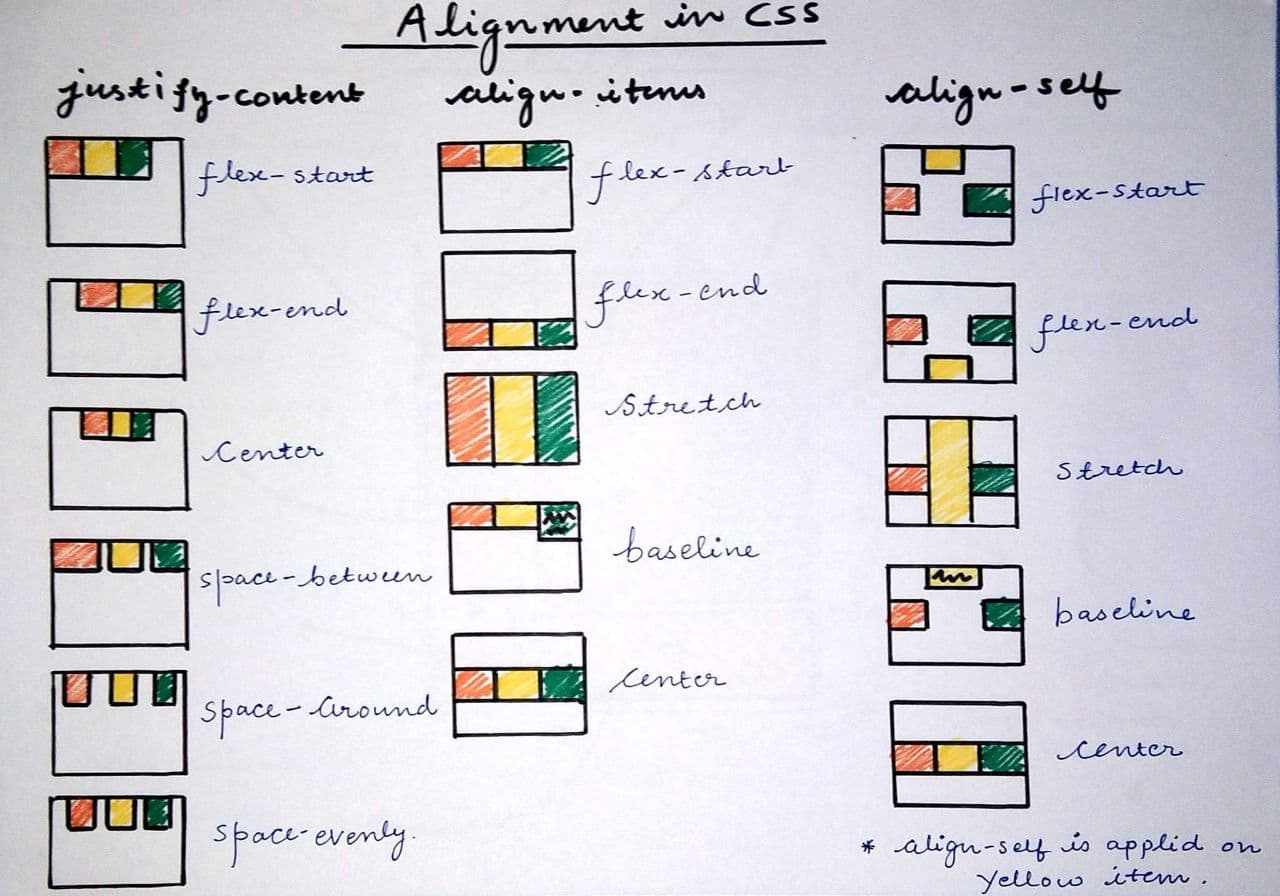 Alignment in CSS
justify-content
flex-start
flex-end
Center
space-between
space-Around
space-evenly.
align-items
flex-start
flex-end
Stretch
baseline
Center
align-self
flex-start
flex-end
Stretch
baseline
Center
* align-self is applid on
Yellow item.